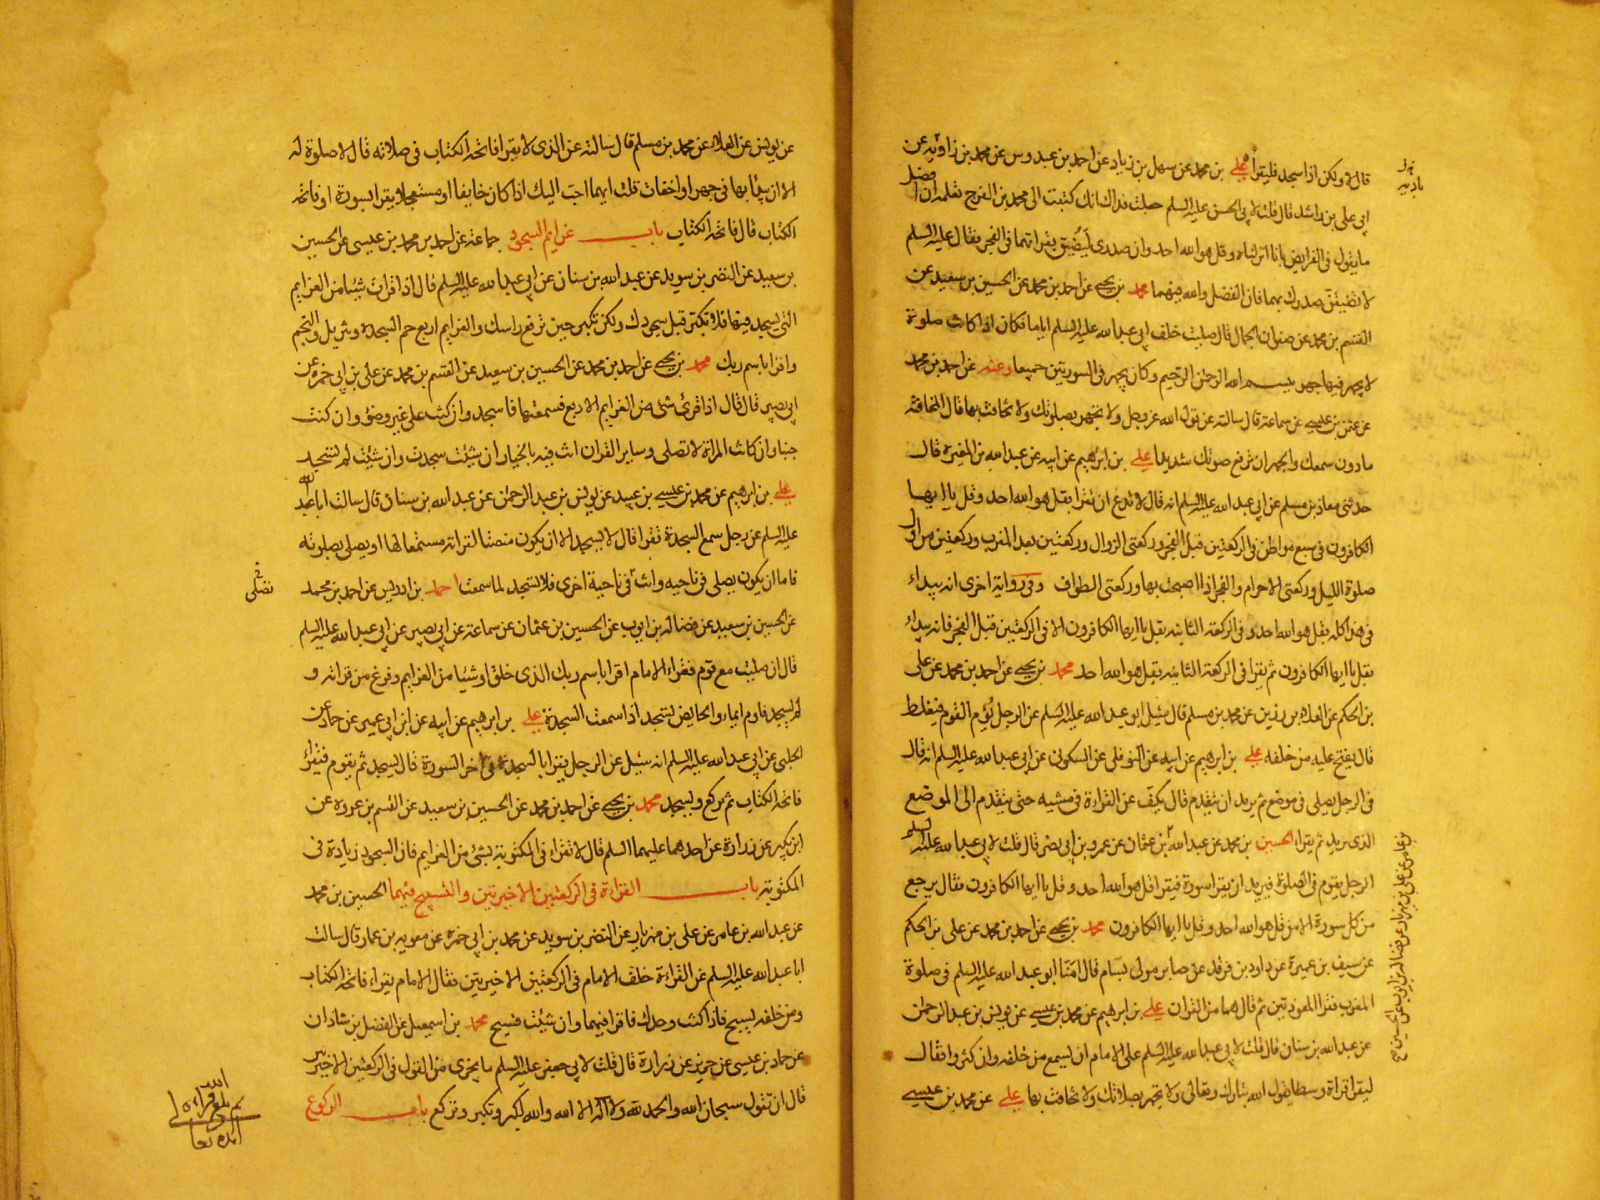 قال لا ولكن اذا سجد فليقرأ علي بن محمد عن سهل بن زياد عن احمد بن عبدوس عن محمد بن زاويه عن
ابي علي بن راشد قال قلت لابي الحسن عليه السلم جعلت فداك انك كتبت الى محمد بن الفرج تعلمه ان افضل
ما يقول في الفرايض بانا انزلناه وقل هو الله احد وان صدري ليضيق بقراءتهما في الفجر فقال عليه السلم
لا تضيقن صدرك بهما فان الفضل والله فيهما محمد بن يحيى عن احمد بن محمد عن الحسين بن سعيد عن
القسم بن محمد عن صفوان الجمال قال صليت خلف ابي عبد الله عليه السلم اياما فكان اذا كانت صلوة
لا يجهر فيها جهر ببسم الله الرحمن الرحيم وكان يجهر في السورتين جميعا وعنه عن احمد بن محمد
عن عثمن بن عيسى عن سماعة قال سالته عن قول الله عز وجل ولا تجهر بصلوتك ولا تخافت بها قال المخافتة
ما دون سمعك والجهر ان ترفع صوتك شديدا علي بن ابرهيم عن ابيه عن عبد الله بن المغيرة قال
حدثني معاذ بن مسلم عن ابي عبد الله عليه السلم انه قال لا تدع ان تقرا بقل هو الله احد وقل يا ايها
الكافرون في سبع مواطن في الركعتين قبل الفجر وركعتي الزوال وركعتين بعد المغرب وركعتين من اول
صلوة الليل وركعتي الاحرام والفجر اذا اصبحت بها وركعتي الطواف وفي رواية اخرى انه يبداء
في هذا كله بقل هو الله احد وفي الركعة الثانيه بقل يا ايها الكافرون الا في الركعتين قبل الفجر فانه يبداء
بقل يا ايها الكافرون ثم يقرا في الركعة الثانيه بقل هو الله احد محمد بن يحيى عن احمد بن محمد عن علي
بن الحكم عن العلاء بن رزين عن محمد بن مسلم قال سئل ابو عبد الله عليه السلم عن الرجل يؤم القوم فيغلط
قال يفتح عليه من خلفه علي بن ابرهيم عن ابيه عن النوفلي عن السكوني عن ابي عبد الله عليه السلم انه قال
في الرجل يصلي في موضع ثم يريد ان يتقدم قال يكف عن القراءة في مشيه حتى يتقدم الى الموضع
الذي يريد ثم يقراء الحسين بن محمد عن عبد الله بن عثمان عن عمرو بن ابي نصر قال قلت لابي عبد الله عليه السلم
الرجل يقوم في الصلوة فيريد ان يقرا سورة فيقرا قل هو الله احد وقل يا ايها الكافرون فقال يرجع
من كل سورة الا من قل هو الله احد وقل يا ايها الكافرون محمد بن يحيى عن احمد بن محمد عن علي بن الحكم
عن سيف بن عميرة عن داود بن فرقد عن صابر مولى بسام قال امنا ابو عبد الله عليه السلم في صلوة
المغرب فقرا المعوذتين ثم قال هما من القران علي بن ابرهيم عن محمد بن عيسى عن يونس بن عبد الرحمن
عن عبد الله بن سنان قال قلت لابي عبد الله عليه السلم على الامام ان يسمع من خلفه وان كثروا فقال
ليقرا قراءة وسطا يقول الله تبارك وتعالى ولا تجهر بصلاتك ولا تخافت بها علي عن محمد بن عيسى
بن عامر عن علي بن مهزيار عن فضالة بن ايوب عن الحسين صح
عن يونس عن العلاء عن محمد بن مسلم قال سالته عن الذي لا يقرا فاتحة الكتاب في صلاته قال لا صلوة له
الا ان يبدا بها في جهر او اخفات قلت ايهما احب اليك اذا كان خايفا او مستعجلا يقرا بسورة او فاتحة
الكتاب قال فاتحة الكتاب باب عزايم السجود جماعة عن احمد بن محمد بن عيسى عن الحسين
بن سعيد عن النضر بن سويد عن عبد الله بن سنان عن ابي عبد الله عليه السلم قال اذا قرات شيئا من العزايم
التي يسجد فيها فلا تكبر قبل سجودك ولكن تكبر حين ترفع راسك والعزايم اربع حم السجدة وتنزيل والنجم
واقرا باسم ربك محمد بن يحيى عن احمد بن محمد عن الحسين بن سعيد عن القسم بن محمد عن علي بن ابي حمزه عن
ابي بصير قال قال اذا قرئ شئ من العزايم الاربع فسمعتها فاسجد وان كنت على غير وضوء وان كنت
جنبا وان كانت المراة لا تصلي وساير القران انت فيه بالخيار ان شئت سجدت وان شئت لم تسجد
علي بن ابرهيم عن محمد بن عيسى بن عبيد عن يونس بن عبد الرحمن عن عبد الله بن سنان قال سالت ابا عبد الله
عليه السلم عن رجل سمع السجدة تقرا قال لا يسجد الا ان يكون منصتا لقراته مستمعا لها او يصلي بصلوته
فاما ان يكون يصلي في ناحيه وانت في ناحية اخرى فلا تسجد لما سمعت احمد بن ادريس عن احمد بن محمد
تصلي
عن الحسين بن سعيد عن فضالة بن ايوب عن الحسين بن عثمان عن سماعة عن ابي بصير عن ابي عبد الله عليه السلم
قال ان صليت مع قوم فقراء الامام اقرا باسم ربك الذي خلق او شيئا من العزايم وفرغ من قراته و
لم يسجد فاوم ايماء والحايض تسجد اذا سمعت السجدة علي بن ابرهيم عن ابيه عن ابن ابي عمير عن حماد عن
الحلبي عن ابي عبد الله عليه السلم انه سئل عن الرجل يقرا بالسجدة في اخر السورة قال يسجد ثم يقوم فيقرؤ
فاتحة الكتاب ثم يركع ويسجد محمد بن يحيى عن احمد بن محمد عن الحسين بن سعيد عن القسم بن عروه عن
ابن بكير عن زرارة عن احدهما عليهما السلم قال لا تقراء في المكتوبة بشئ من العزايم فان السجود زيادة في
المكتوبة باب القراءة في الركعتين الاخيرتين والتسبيح فيهما الحسين بن محمد
عن عبد الله بن عامر عن علي بن مهزيار عن النضر بن سويد عن محمد بن ابي حمزه عن معويه بن عمار قال سالت
ابا عبد الله عليه السلم عن القراءة خلف الامام في الركعتين الاخيرتين فقال الامام يقراء فاتحة الكتاب
ومن خلفه يسبح فاذا كنت وحدك فاقرا فيهما وان شئت فسبح محمد بن اسمعيل عن الفضل بن شاذان
عن حماد بن عيسى عن حريز عن زرارة قال قلت لابي جعفر عليه السلم ما يجزي من القول في الركعتين الاخيرتين
قال ان تقول سبحان الله والحمد لله ولا اله الا الله والله اكبر وتكبر وتركع باب الركوع